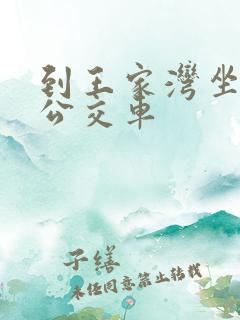 到王家湾坐
公交车
子缮
未经同意禁止转载